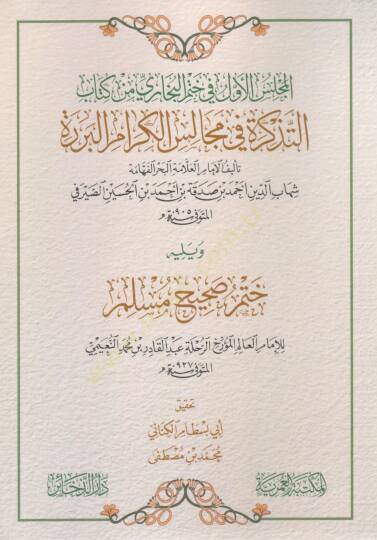 المجلس الأول في ختم البخاري من كتاب
التذكرة في مجالس الكرام البررة
تأليف الإمام العلامة البحر الفهامة
شهاب الدين أحمد بن صدقة بن أحمد بن الحسين الصيرفي
المتوفى سنة ٩٠٥ هـ
ويليه
ختم صحيح مسلم
للإمام العالم المؤرخ الرحلة عبد القادر بن محمد النعيمي
المتوفى سنة ٩٢٧ هـ
تحقيق
أبي بسطام الكناني
محمد بن مصطفى
المكتبة العمرية
دار الذخائر